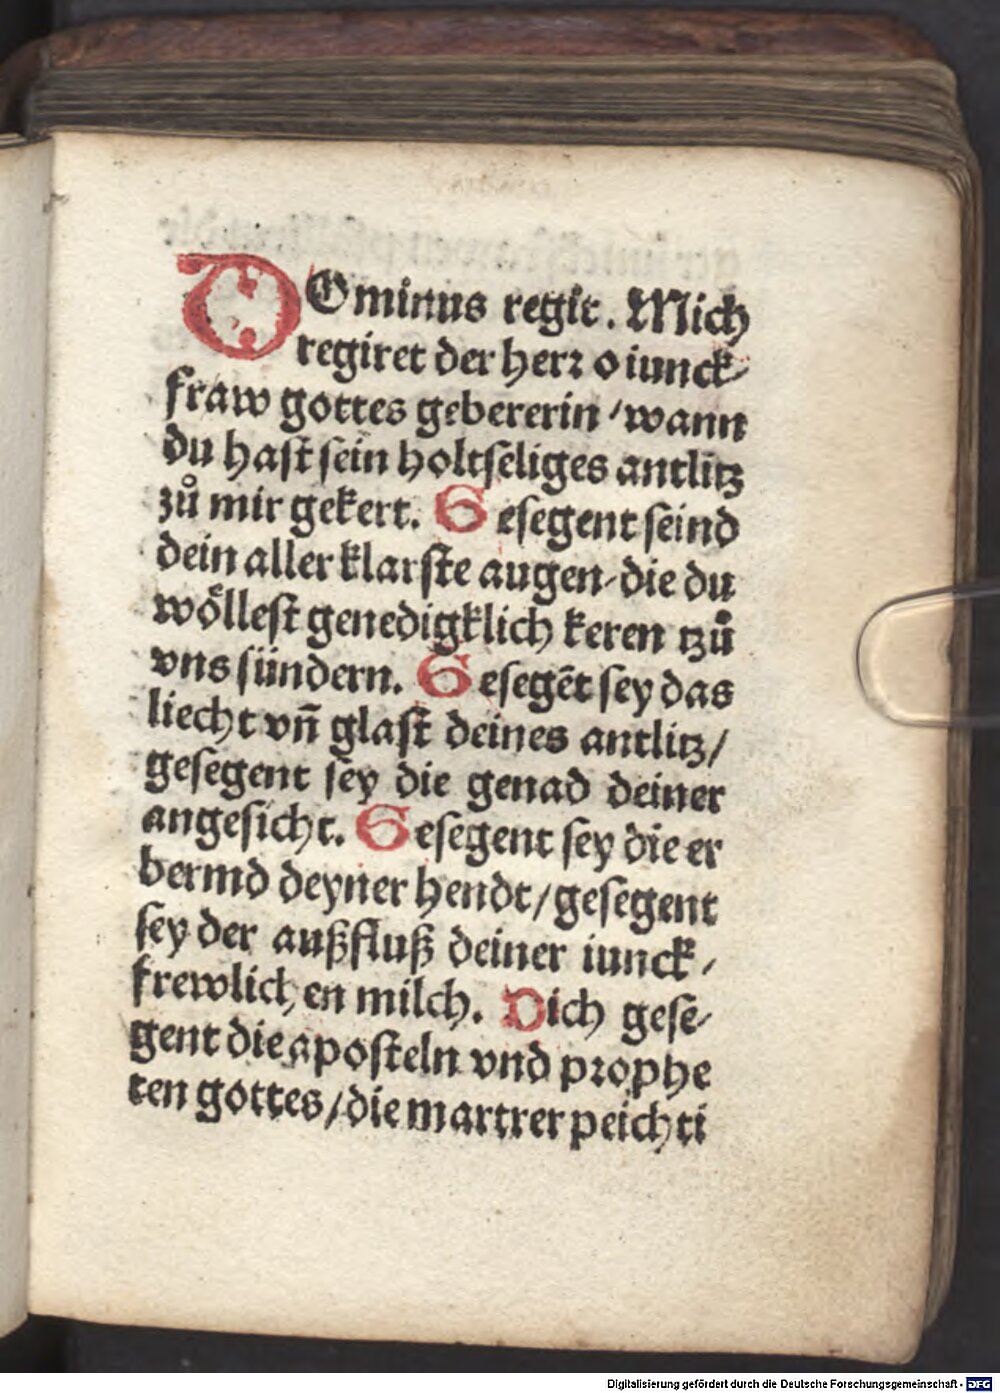 DOminus regit. Mich
regiret der herꝛ o iunck-
fraw gottes gebererin / wann
du hast sein holtseliges antlitz
zů mir gekert. Gesegent seind
dein aller klarste augen / die du
wöllest genedigklich keren tzů
vns sündern. Gesegēt sey das
liecht vn̄ glast deines antlitz /
gesegent sey die genad deiner
angesicht. Gesegent sey die er
bermd deyner hendt / gesegent
sey der außfluß deiner iunck-
frewlichen milch. Dich gese-
gent die aposteln vnd pꝛophe
ten gottes / die martrer peichti
Digitalisierung gefördert durch die Deutsche Forschungsgemeinschaft - DFG